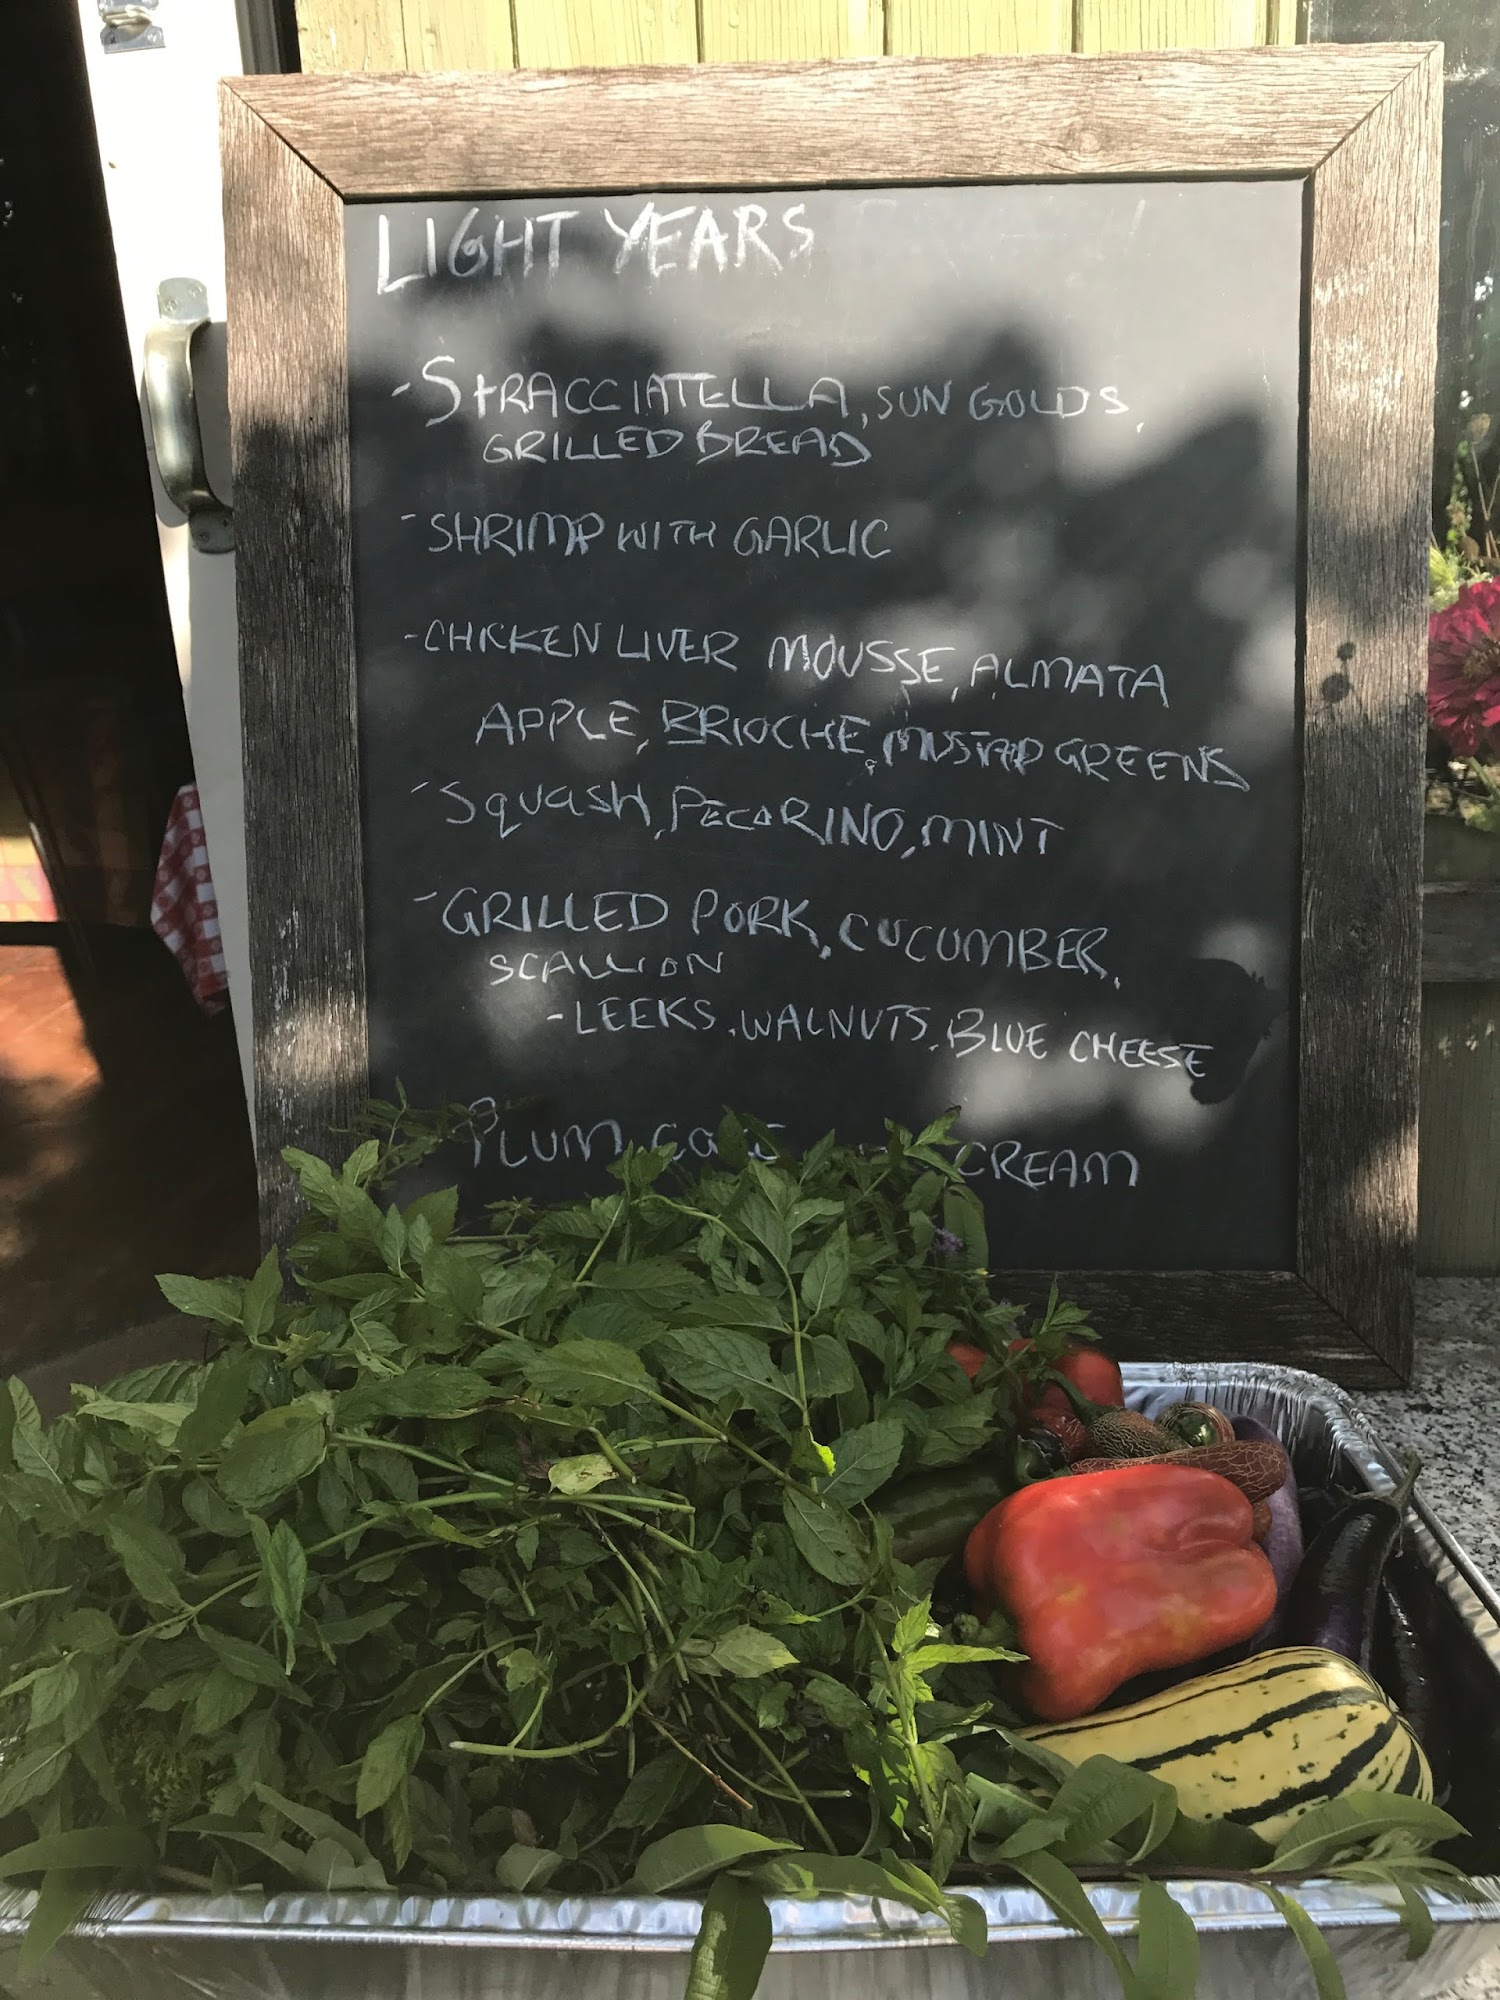 LIGHT YEARS
- STRACCIATELLA, SUN GOLDS,
GRILLED BREAD
- SHRIMP WITH GARLIC
- CHICKEN LIVER MOUSSE, ALMATA
APPLE, BRIOCHE, MUSTARD GREENS
- SQUASH, PECORINO, MINT
- GRILLED PORK, CUCUMBER,
SCALLION
- LEEKS, WALNUTS, BLUE CHEESE
PLUM CREAM